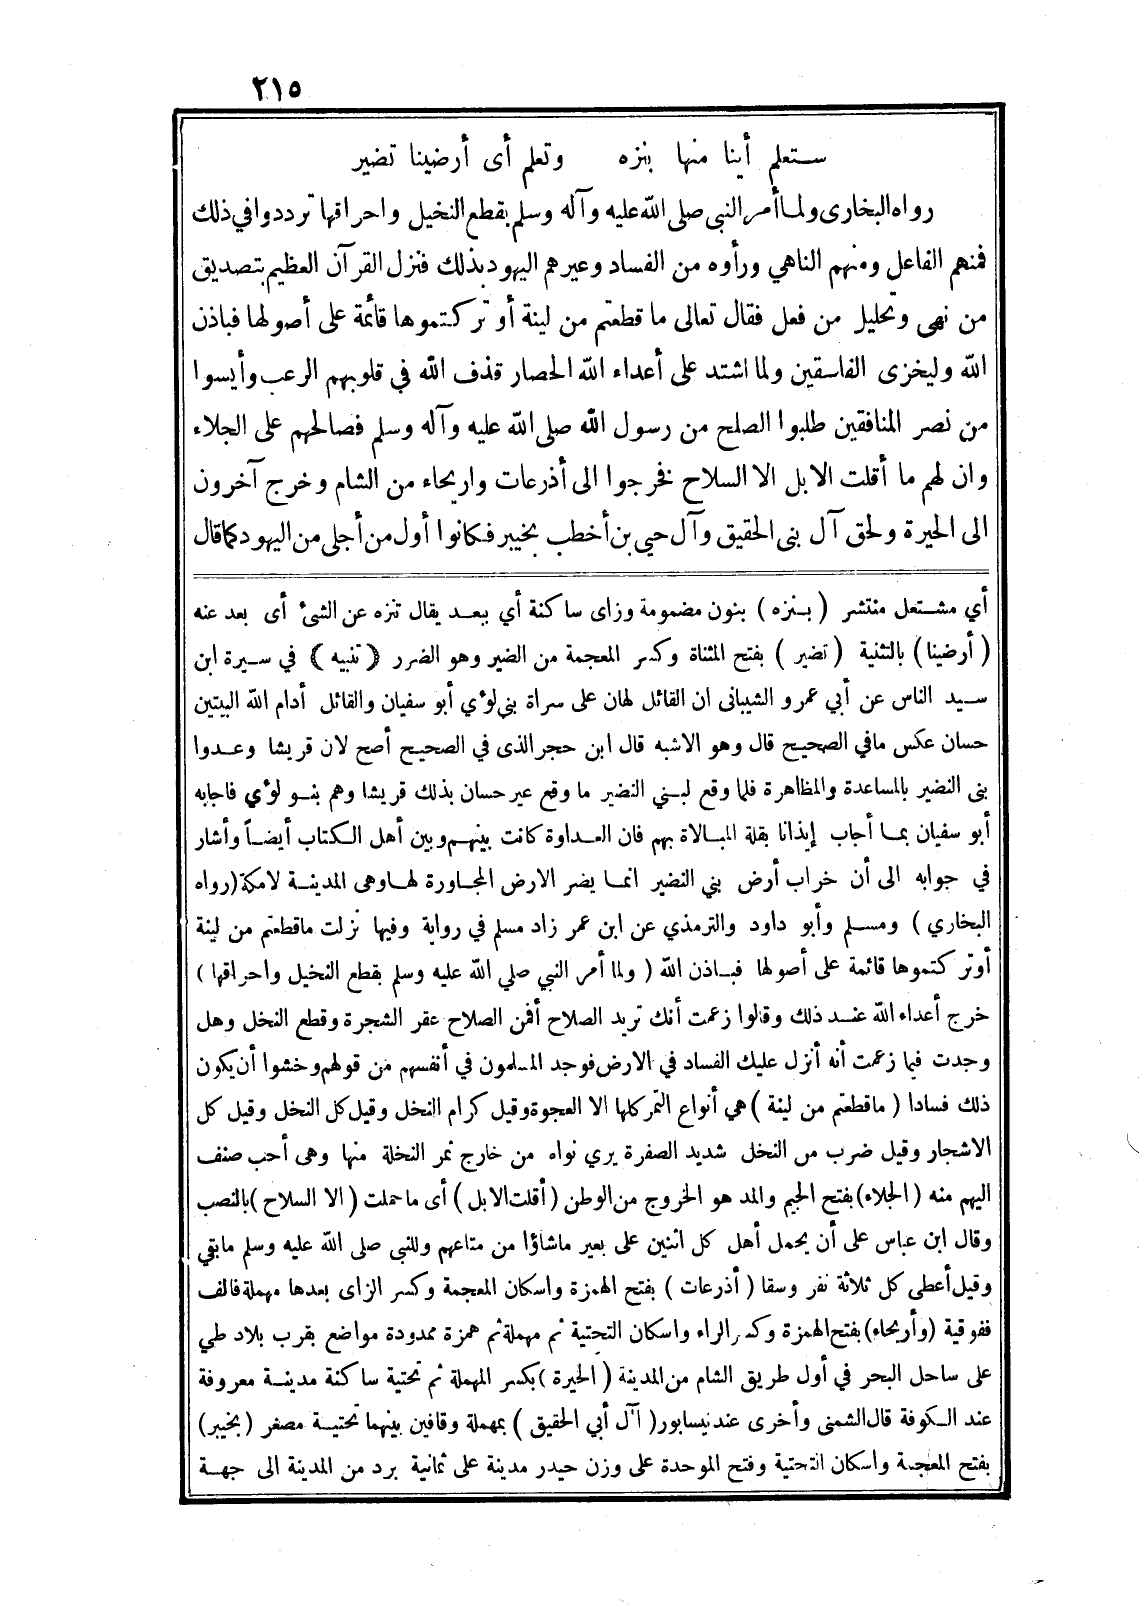 ٢١٥
ستعلم أينا منها بنزه وتعلم أى أرضينا تضير
رواه البخارى ولما أمر النبى صلى الله عليه وآله وسلم بقطع النخيل واحراقها ترددوا في ذلك
فمنهم الفاعل ومنهم الناهي ورأوه من الفساد وعيرهم اليهود بذلك فنزل القرآن العظيم بتصديق
من نهى وتحليل من فعل فقال تعالى ما قطعتم من لينة أو تركتموها قائمة على أصولها فباذن
الله وليخزى الفاسقين ولما اشتد على أعداء الله الحصار قذف الله في قلوبهم الرعب وأيسوا
من نصر المنافقين طلبوا الصلح من رسول الله صلى الله عليه وآله وسلم فصالحهم على الجلاء
وان لهم ما أقلت الابل الا السلاح فخرجوا الى أذرعات واريحاء من الشام وخرج آخرون
الى الحيرة ولحق آل بنى الحقيق وآل حيى بن أخطب بخيبر فكانوا أول من أجلى من اليهود كما قال
أي مشتعل منتشر ( بنزه ) بنون مضمومة وزاى ساكنة أي ببعد يقال تنزه عن الشئ أى بعد عنه
( أرضينا ) بالتثنية ( تضير ) بفتح المثناة وكسر المعجمة من الضير وهو الضرر ( تنبيه ) في سيرة ابن
سيد الناس عن أبي عمرو الشيبانى ان القائل لهان على سراة بني لوٴي أبو سفيان والقائل أدام الله البيتين
حسان عكس مافي الصحيح قال وهو الاشبه قال ابن حجر الذى في الصحيح أصح لان قريشا وعدوا
بنى النضير بالمساعدة والمظاهرة فلما وقع لبني النضير ما وقع عير حسان بذلك قريشا وهم بنو لوٴي فاجابه
أبو سفيان بما أجاب إيذانا بقلة المبالاة بهم فان العداوة كانت بينهم وبين أهل الكتاب أيضاً وأشار
في جوابه الى أن خراب أرض بني النضير انما يضر الارض المجاورة لها وهى المدينة لامكة (رواه
البخاري ) ومسلم وأبو داود والترمذي عن ابن عمر زاد مسلم في رواية وفيها نزلت ماقطعتم من لينة
أوتركتموها قائمة على أصولها فباذن الله ( ولما أمر النبي صلي الله عليه وسلم بقطع النخيل واحراقها )
خرج أعداء الله عند ذلك وقالوا زعمت أنك تريد الصلاح أفمن الصلاح عقر الشجرة وقطع النخل وهل
وجدت فيما زعمت أنه أنزل عليك الفساد في الارض فوجد المسلمون في أنفسهم من قولهم وخشوا أن يكون
ذلك فسادا ( ماقطعتم من لينة ) هي أنواع التمر كلها الا العجوة وقيل كرام النخل وقيل كل النخل وقيل كل
الاشجار وقيل ضرب من النخل شديد الصفرة يري نواه من خارج تمر النخلة منها وهى أحب صنف
اليهم منه ( الجلاء ) بفتح الجيم والمد هو الخروج من الوطن ( أقلت الابل ) أى ماحملت ( الا السلاح ) بالنصب
وقال ابن عباس على أن يحمل أهل كل اثنين على بعير ماشاؤا من متاعهم وللنبي صلى الله عليه وسلم مابقي
وقيل أعطى كل ثلاثة نفر وسقا ( أذرعات ) بفتح الهمزة واسكان المعجمة وكسر الزاى بعدها مهملة فالف
ففوقية ( وأريحاء ) بفتح الهمزة وكسر الراء واسكان التحتية ثم مهملة ثم همزة ممدودة مواضع بقرب بلاد طي
على ساحل البحر في أول طريق الشام من المدينة ( الحيرة ) بكسر المهملة ثم تحتية ساكنة مدينة معروفة
عند الكوفة قال الشمنى وأخرى عند نيسابور ( آل أبي الحقيق ) بمهملة وقافين بينهما تحتية مصغر ( بخيبر )
بفتح المعجمة واسكان التحتية وفتح الموحدة على وزن حيدر مدينة على ثمانية برد من المدينة الى جهة